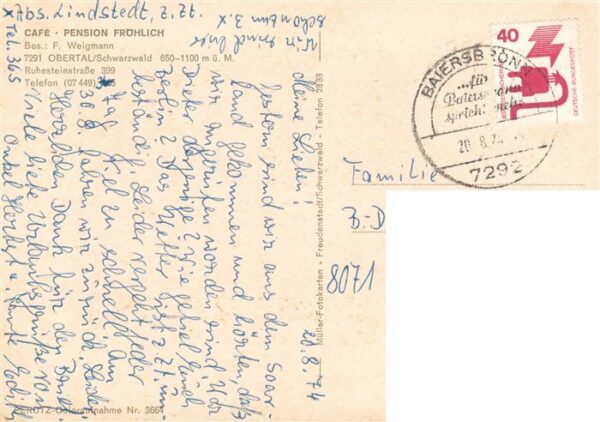 x Abs. Lindstedt, z. Zt.
CAFÉ · PENSION FRÖHLICH
Bes.: F. Weigmann
7291 OBERTAL/Schwarzwald 650—1100 m ü. M.
Ruhesteinstraße 399
Telefon (07 449)
x Tel. 365
Wir sind hier
schon zum 3. x
20.8.74
Meine Lieben!
Gestern sind wir aus dem Sour-
land gekommen und hörten, daß
wir angerufen worden sind. Ist
Dieter
Berlin? Das Wetter ist z. Zt. un-
beständig. Leider vergeht der
Tag viel zu schnell. Am
30.8. fahren wir zurück. Leider.
Herzlichen Dank für den
Viele liebe Urlaubsgrüße von
Onkel Herbert u. Tante Edith
PERUTZ-Coloraufnahme Nr. 3664
Müller-Fotokarten · Freudenstadt/Schwarzwald · Telefon 2933
40
DEUTSCHE BUNDESPOST
BAIERSBRONN
...für
Baiersbronn
spricht mehr
20.-8.74
7292
Familie
B.-D
8071